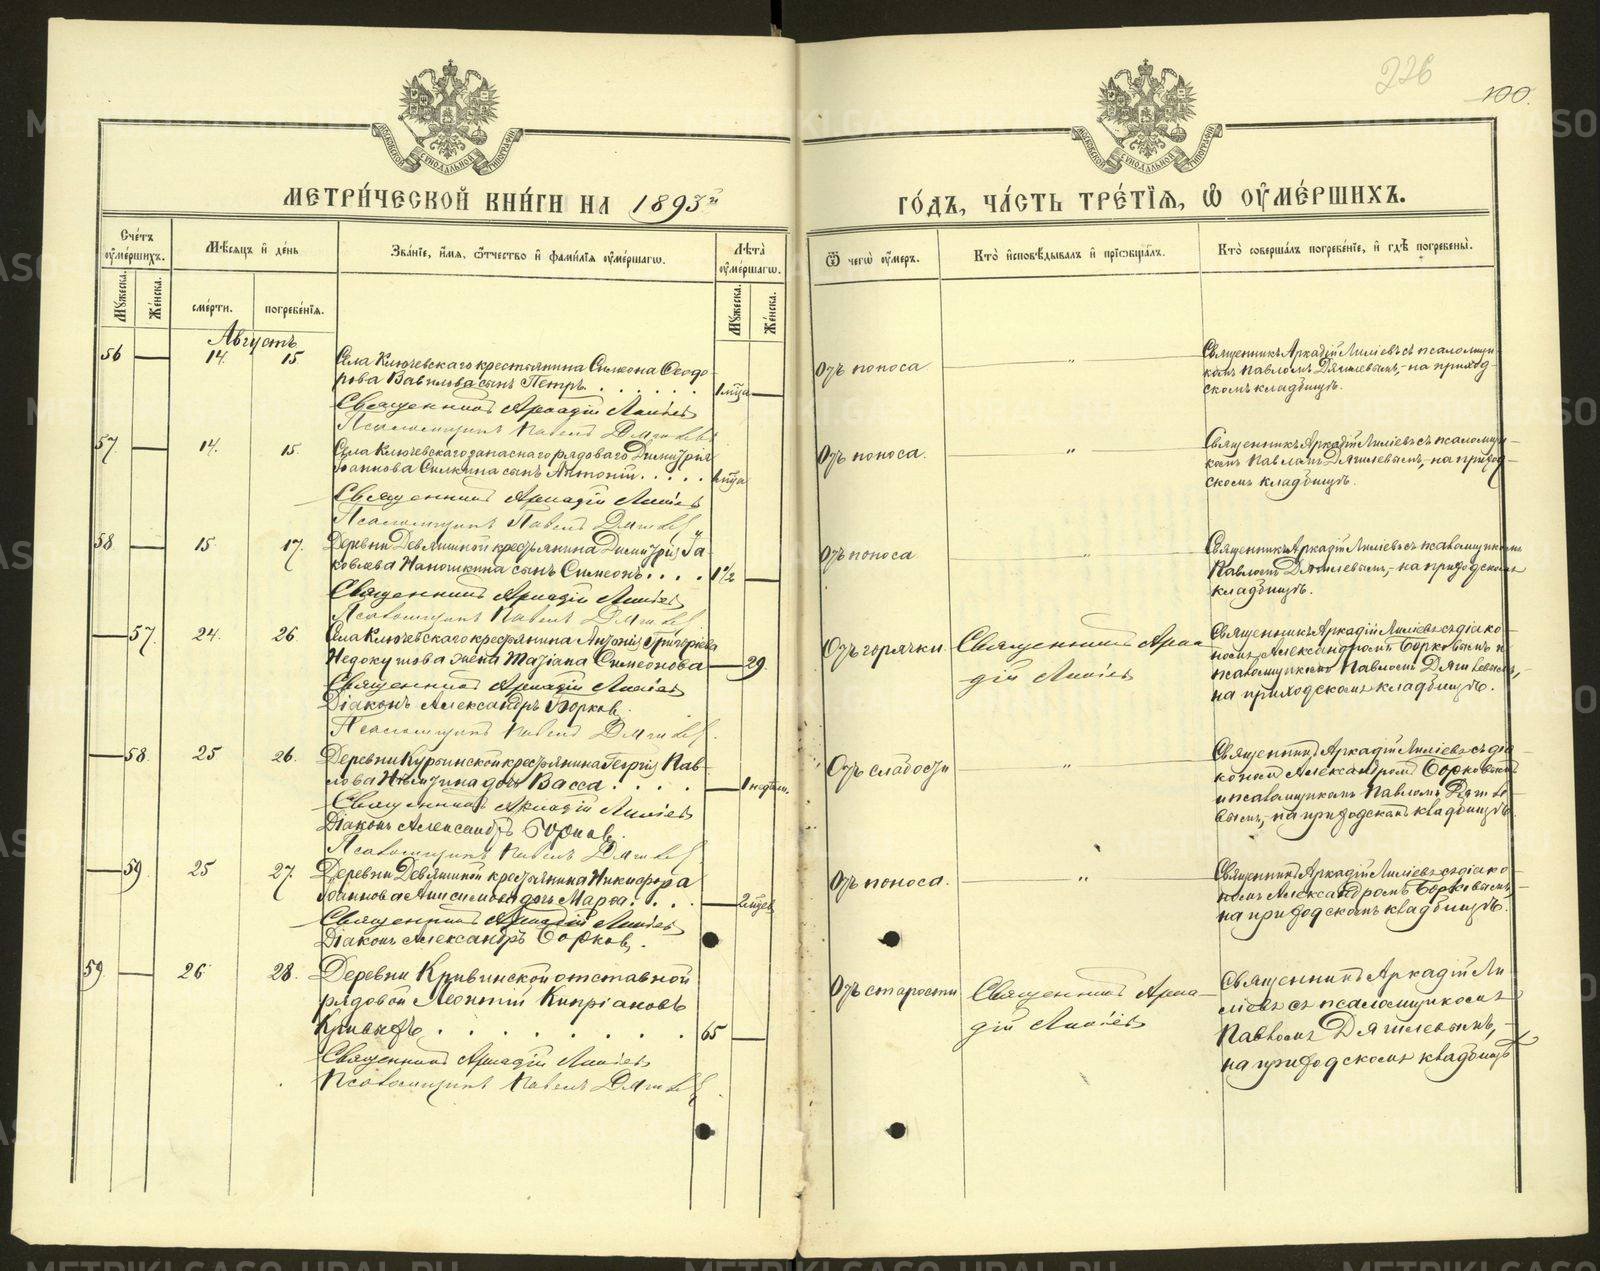 226
100.
МЕТРИ́ЧЕСКОЙ КНИ́ГИ НА 1893й
ГО́ДЪ, ЧА́СТЬ ТРЕ́ТІЯ, Ѡ ОУМЕ́РШИХЪ.
Сче́тъ оуме́ршихъ.
Мꙋ́жеска.
Же́нска.
Мѣ́сяцъ и҆ де́нь
сме́рти.
погребе́нїя.
Зва́нїе, и҆́мя, ѻ҆́тчество и҆ фами́лїя оуме́ршагѡ.
Лѣ́та оуме́ршагѡ.
Мꙋ́жеска.
Же́нска.
Ѿ чегѡ̀ оу҆́меръ.
Кто̀ и҆сповѣ́дывалъ и҆ прїѡбща́лъ.
Кто̀ соверша́лъ погребе́нїе, и҆ гдѣ̀ погребены̀.
Августъ
56 14. 15 Села Ключевскаго крестьянина Симеона Ѳеодо-
рова Вавилова сынъ Петръ. . . . . . 1 мца
Священникъ Аркадій Лиліевъ
Псаломщикъ Павелъ Дягилевъ
Отъ поноса
Священникъ Аркадій Лиліевъ съ псаломщи-
комъ Павломъ Дягилевымъ,-на приход-
скомъ кладбищѣ.
57. 14. 15. Села Ключевскаго запаснаго рядоваго Димитрія
Іоаннова Силкина сынъ Антоній. . . . . мца
Священникъ Аркадій Лиліевъ
Псаломщикъ Павелъ Дягилевъ
Отъ поноса.
Священникъ Аркадій Лиліевъ съ псаломщи-
комъ Павломъ Дягилевымъ, на приход-
скомъ кладбищѣ.
58. 15. 17. Деревни Девяшиной крестьянина Димитрія Іа-
ковлева сынъ Симеонъ. . . . 1½
Священникъ Аркадій Лиліевъ
Псаломщикъ Павелъ Дягилевъ
Отъ поноса
Священникъ Аркадій Лиліевъ съ псаломщикомъ
Павломъ Дягилевымъ,-на приходскомъ
кладбищѣ.
57. 24. 26. Села Ключевскаго крестьянина Антонія Григорьева
Недокушова жена Татіана Симеонова 29.
Священникъ Аркадій Лиліевъ
Діаконъ Александръ Борковъ.
Псаломщикъ Павелъ Дягилевъ.
Отъ горячки.
Священникъ Арка-
дій Лиліевъ
Священникъ Аркадій Лиліевъ съ діако-
номъ Александромъ Борковымъ и
псаломщикомъ Павломъ Дягилевымъ,
на приходскомъ кладбищѣ.
58. 25 26. Деревни крестьянина Георгія Пав-
лова дочь Васса. . . . . 1 недѣли.
Священникъ Аркадій Лиліевъ
Діаконъ Александръ Борковъ.
Псаломщикъ Павелъ Дягилевъ
Отъ слабости
Священникъ Аркадій Лиліевъ съ діа-
кономъ Александромъ Борковымъ
и псаломщикомъ Павломъ Дягиле-
вымъ,-на приходскомъ кладбищѣ.
59. 25 27. Деревни Девяшиной крестьянина Никифора
Іоаннова Анисимова дочь Марѳа. . . . 2 мцев
Священникъ Аркадій Лиліевъ
Діаконъ Александръ Борковъ.
Отъ поноса.
Священникъ Аркадій Лиліевъ съ діако-
номъ Александромъ Борковымъ
на приходскомъ кладбищѣ.
59. 26 28. Деревни Кривинской отставной
рядовой Леонтій Кипріановъ
. . . . . . . . 65
Священникъ Аркадій Лиліевъ
Псаломщикъ Павелъ Дягилевъ
Отъ старости
Священникъ Арка-
дій Лиліевъ
Священникъ Аркадій Ли-
ліевъ съ псаломщикомъ
Павломъ Дягилевымъ,
на приходскомъ кладбищѣ